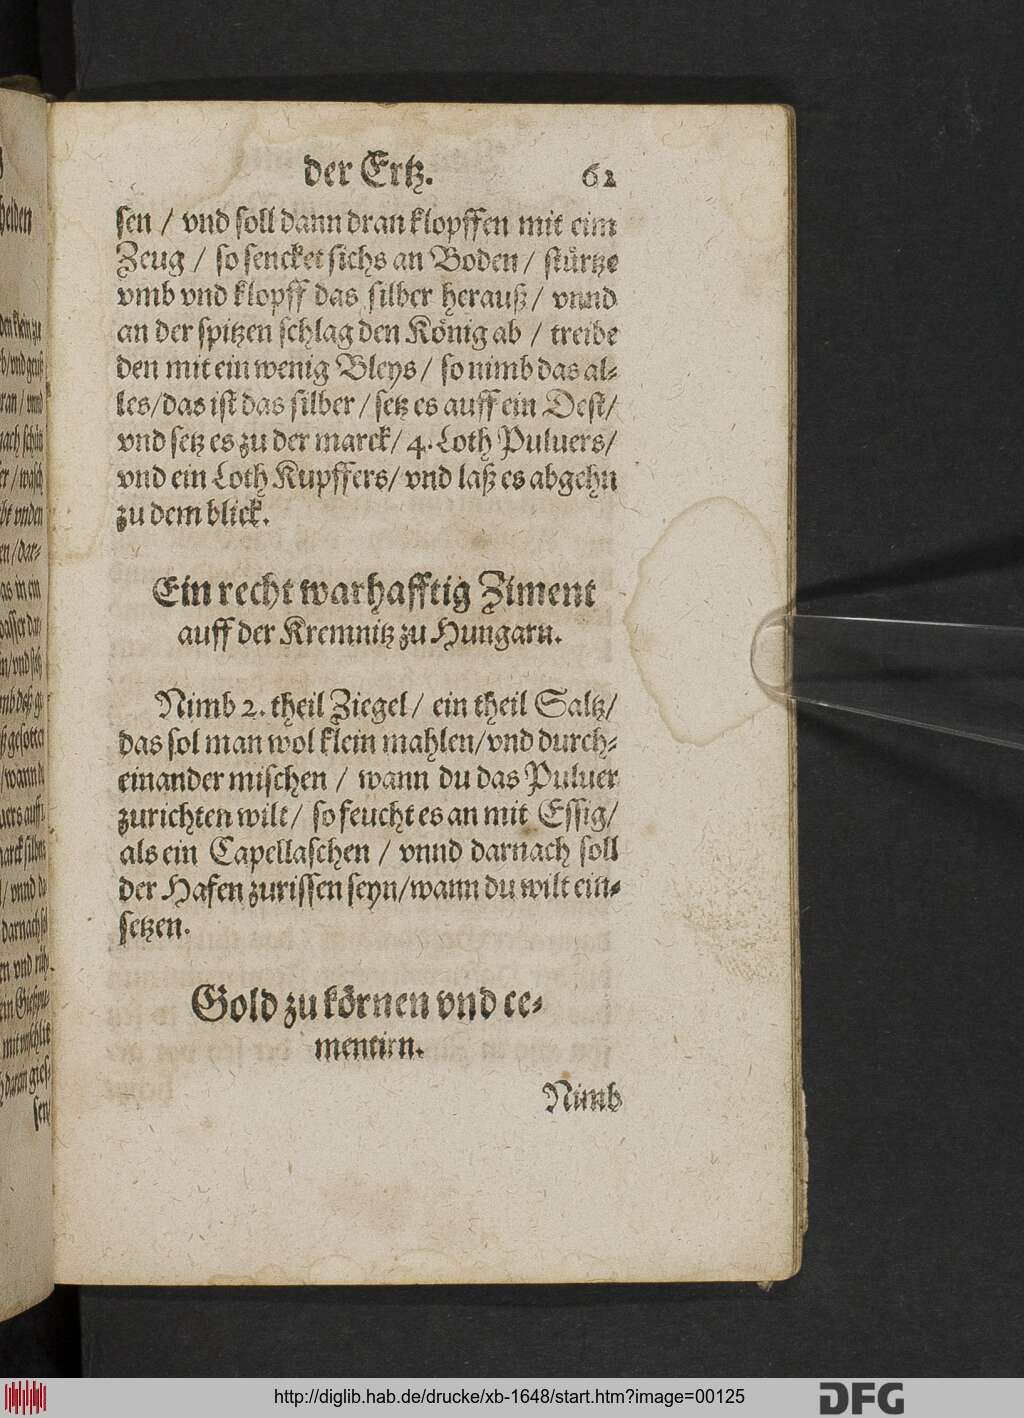 der Ertz. 62
sen / vnd soll dann dran klopffen mit eim
Zeug / so sencket sichs an Boden / stürtze
vmb vnd klopff das silber herauß / vnnd
an der spitzen schlag den König ab / treibe
den mit ein wenig Bleys / so nimb das al-
les / das ist das silber / setz es auff ein Dest /
vnd setz es zu der marck / 4. Loth Puluers /
vnd ein Loth Kupffers / vnd laß es abgehn
zu dem blick.
Ein recht warhafftig Ziment
auff der Kremnitz zu Hungarn.
Nimb 2. theil Ziegel / ein theil Saltz /
das sol man wol klein mahlen / vnd durch-
einander mischen / wann du das Puluer
zurichten wilt / so feucht es an mit Essig /
als ein Capellaschen / vnnd darnach soll
der Hafen zurissen seyn / wann du wilt ein-
setzen.
Gold zu körnen vnd ce-
mentirn.
Nimb
http://diglib.hab.de/drucke/xb-1648/start.htm?image=00125
DFG